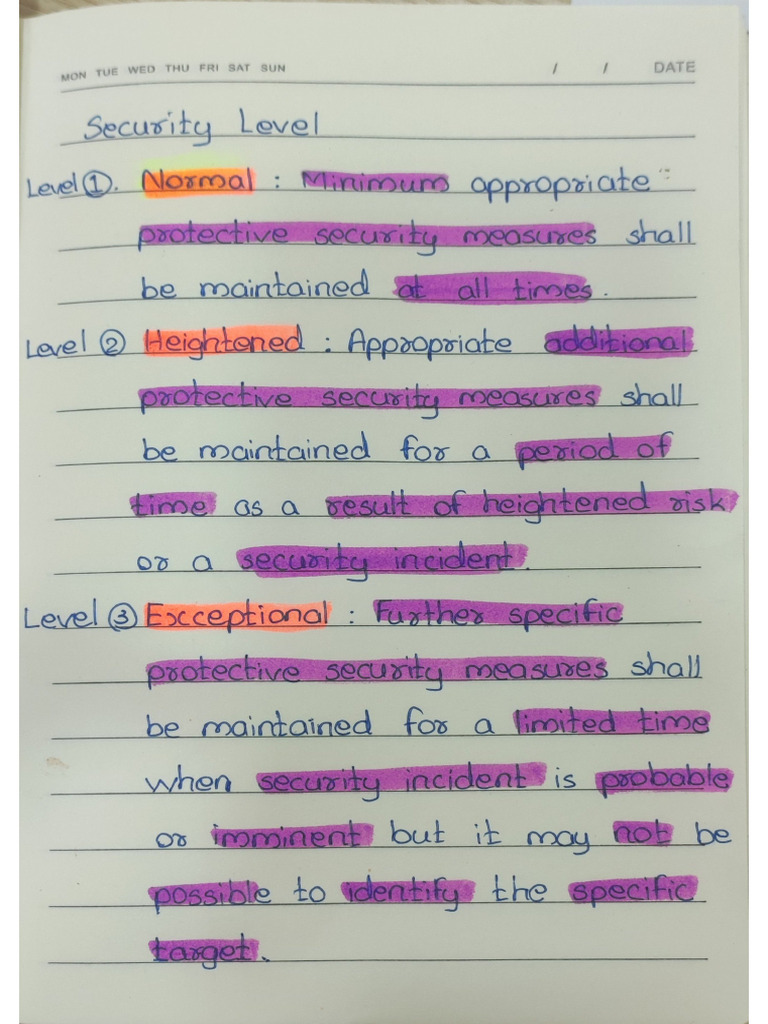 MON TUE WED THU FRI SAT SUN / / DATE
Security Level
Level ①. Normal : Minimum appropriate
protective security measures shall
be maintained at all times.
Level ② Heightened : Appropriate additional
protective security measures shall
be maintained for a period of
time as a result of heightened risk
or a security incident.
Level ③ Excceptional : Further specific
protective security measures shall
be maintained for a limited time
when security incident is probable
or imminent but it may not be
possible to identify the specific
target.